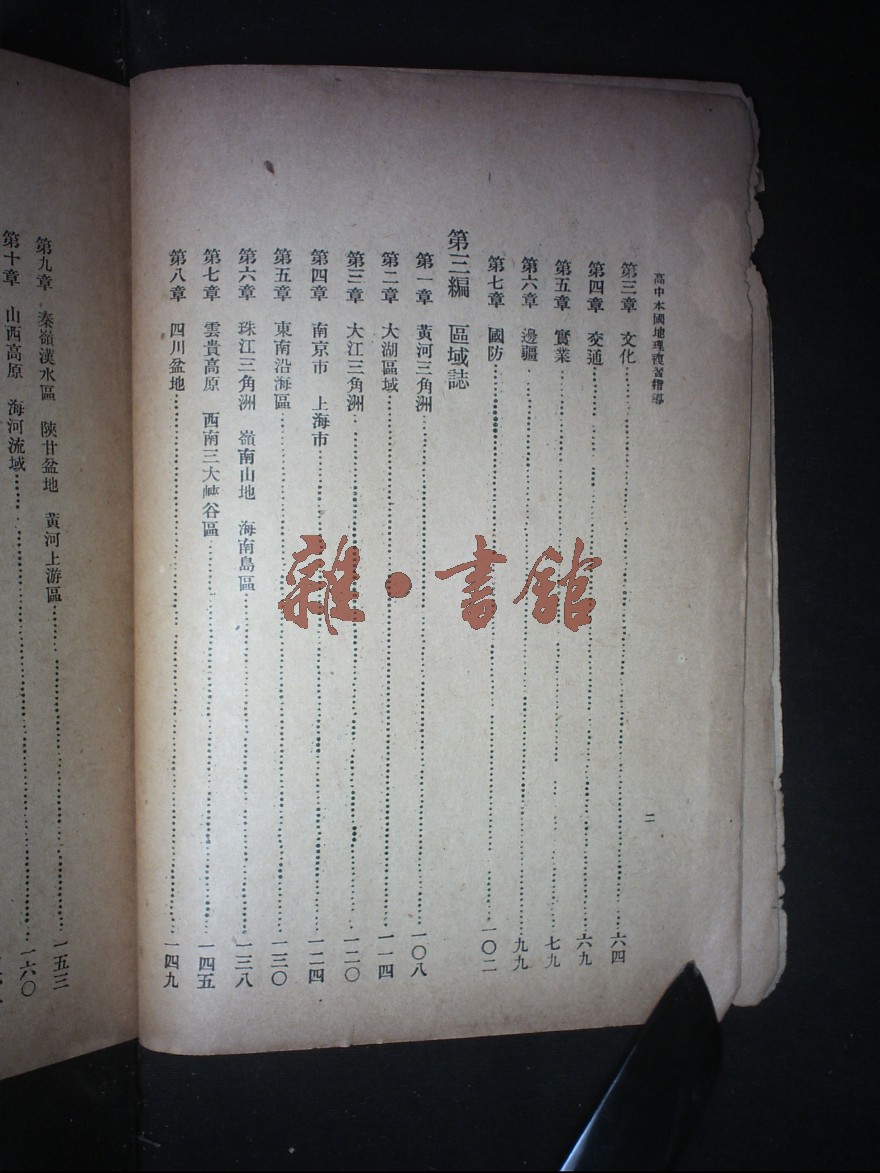 高中本國地理複習指導
二
第三章 文化 六四
第四章 交通 六九
第五章 實業 七九
第六章 邊疆 九九
第七章 國防 一〇二
第三編 區域誌
第一章 黃河三角洲 一〇八
第二章 大湖區域 一一四
第三章 大江三角洲 一二〇
第四章 南京市 上海市 一二四
第五章 東南沿海區 一三〇
第六章 珠江三角洲 嶺南山地 海南島區 一三八
第七章 雲貴高原 西南三大峽谷區 一四五
第八章 四川盆地 一四九
第九章 秦嶺漢水區 陝甘盆地 黃河上游區 一五三
第十章 山西高原 海河流域 一六〇
雜·書館